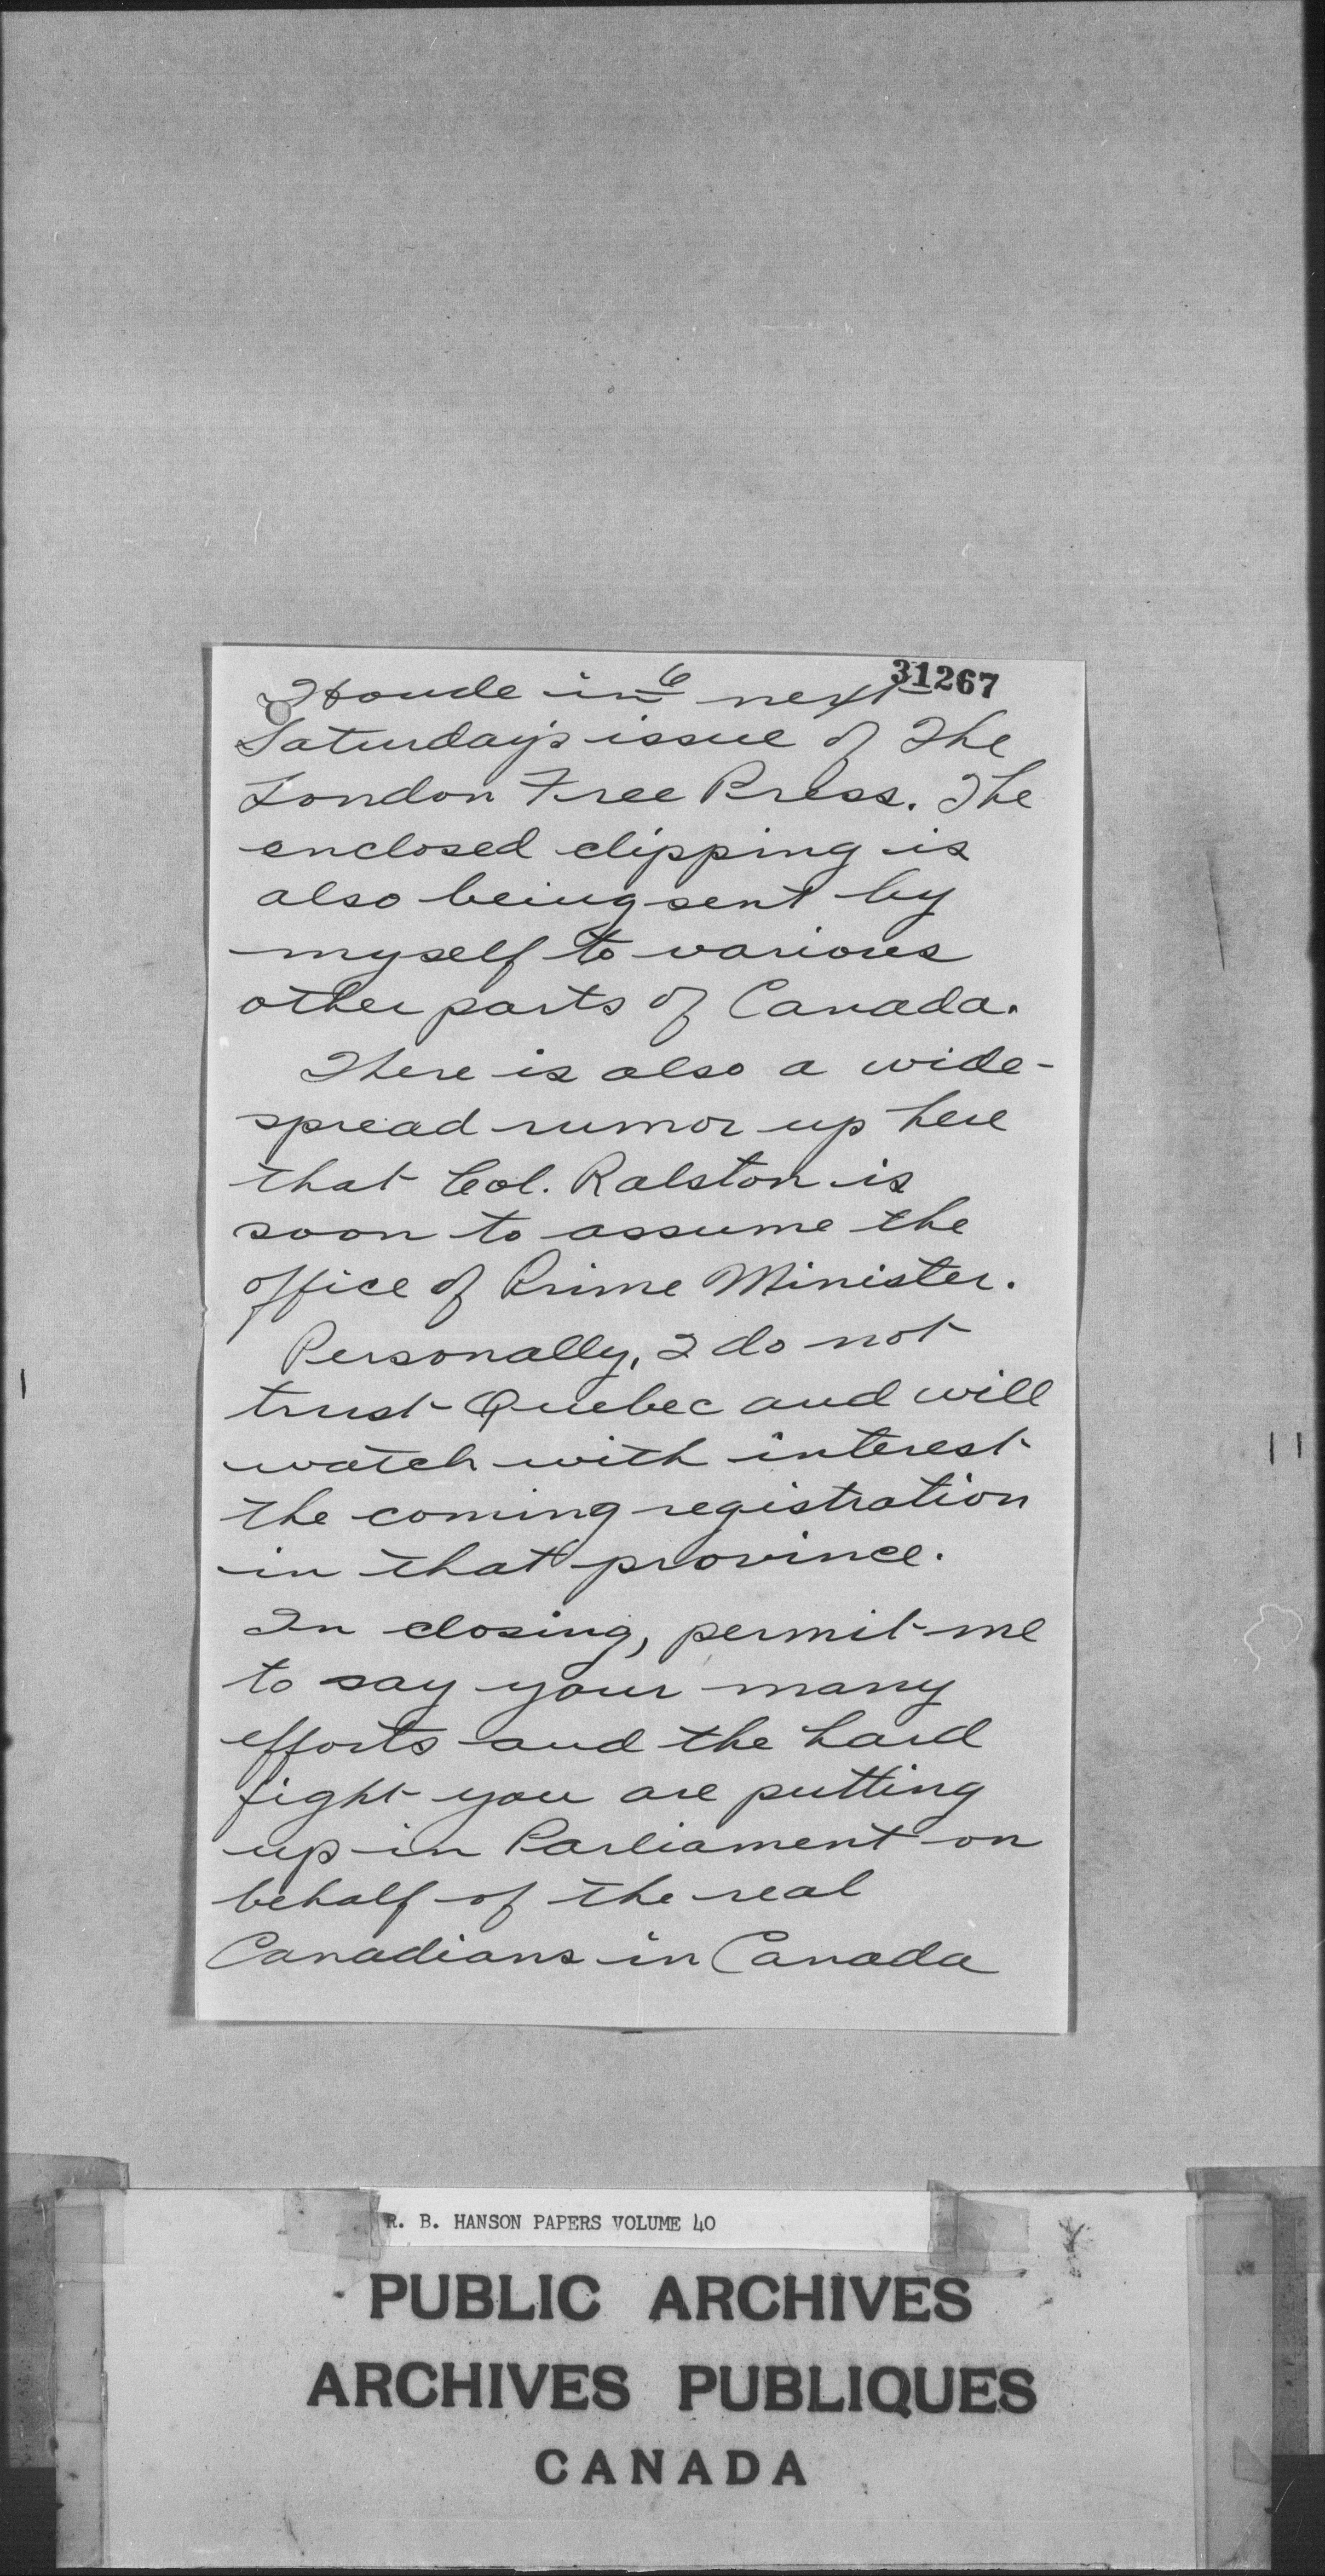 6
31267
Houde in next
Saturday's issue of The
London Free Press. The
enclosed clipping is
also being sent by
myself to various
other parts of Canada.
There is also a wide-
spread rumor up here
that Col. Ralston is
soon to assume the
office of Prime Minister.
Personally, I do not
trust Quebec and will
watch with interest
the coming registration
in that province.
In closing, permit me
to say your many
efforts and the hard
fight you are putting
up in Parliament on
behalf of the real
Canadians in Canada
R. B. HANSON PAPERS VOLUME 40
PUBLIC ARCHIVES
ARCHIVES PUBLIQUES
CANADA